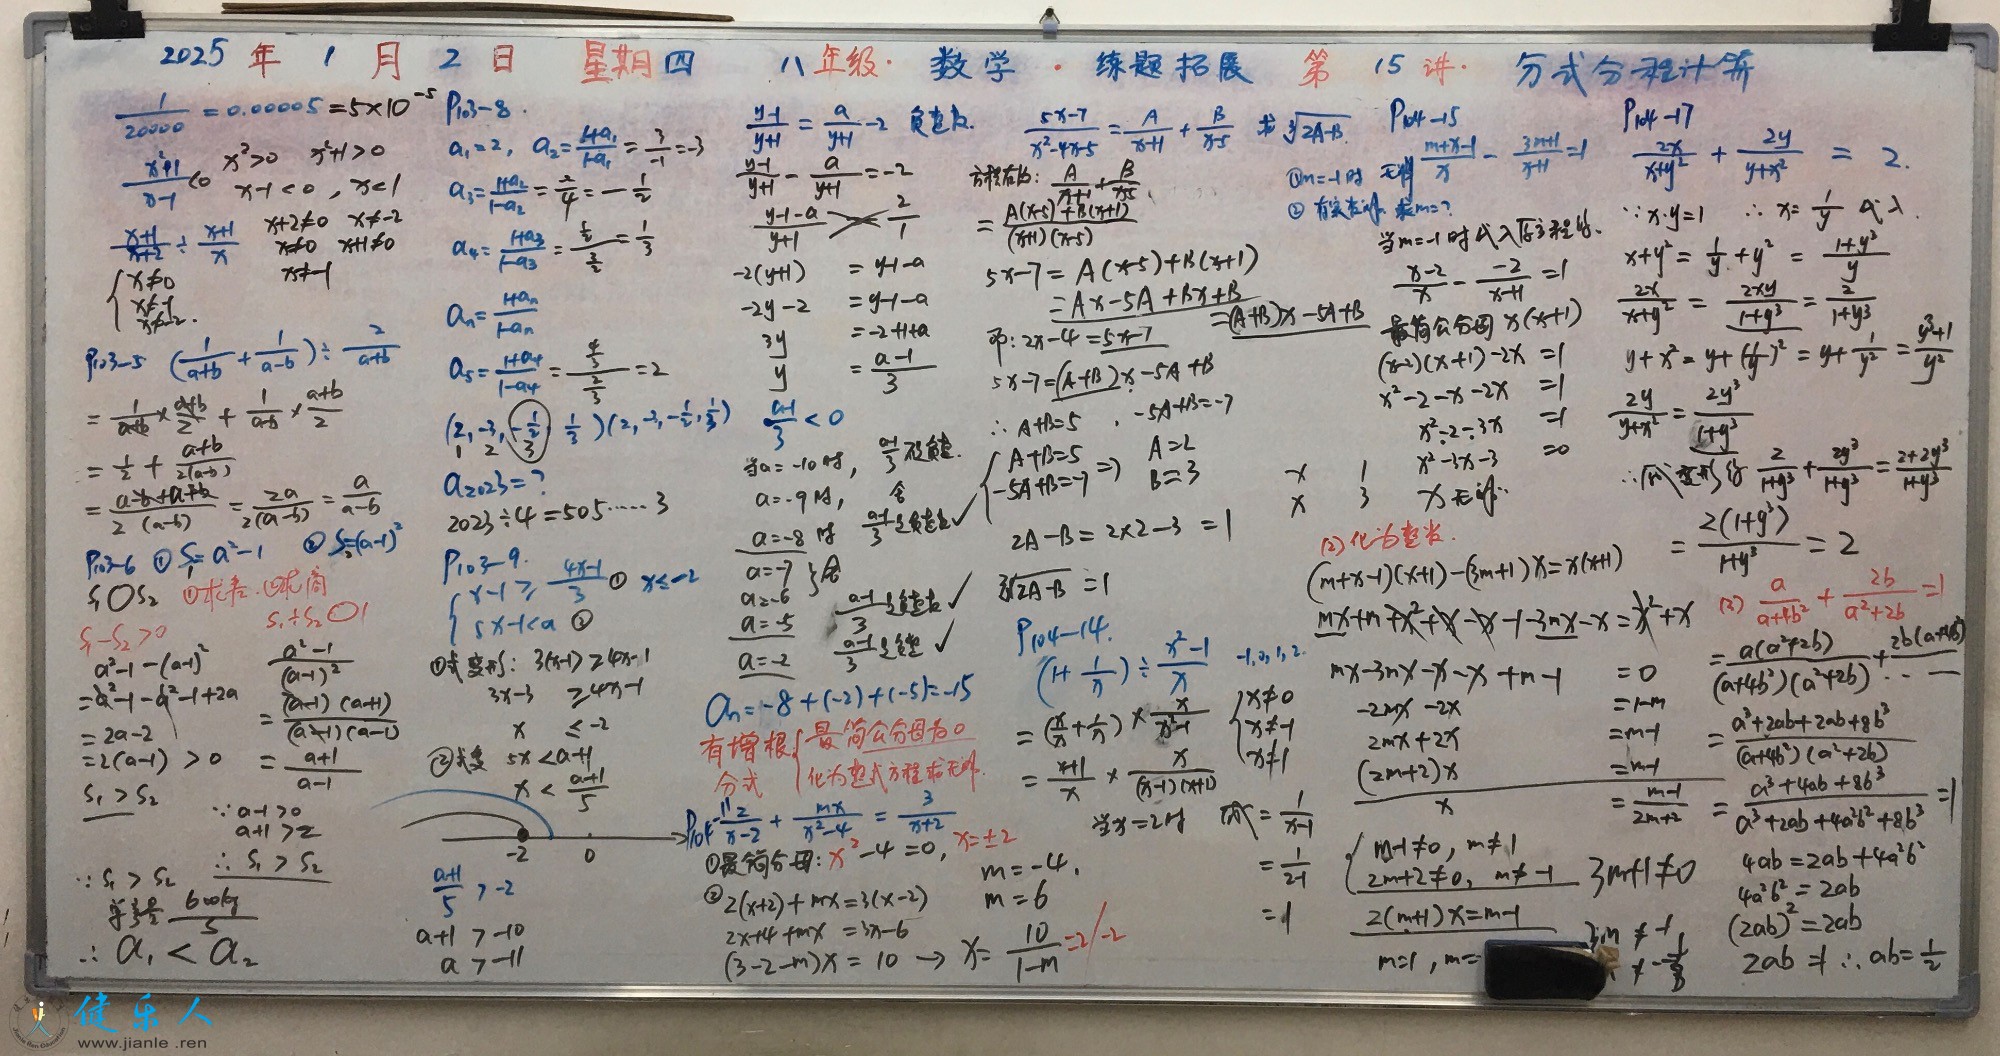 2025 年 1 月 2 日 星期四 八年级· 数学 · 练题拓展 第 15 讲· 分式方程计算
1/20000 = 0.00005 = 5×10⁻⁵
(x²+1)/(x-1) <0 x²>0 x²+1>0
x-1<0 , x<1
(x+1)/(x+2) ÷ (x+1)/x x+2≠0 x≠-2
x≠0 x+1≠0
x≠-1
{ x≠0
x≠-1
x≠-2.
P103-5 (1/(a+b) + 1/(a-b)) ÷ 2/(a+b)
= 1/(a+b) × (a+b)/2 + 1/(a-b) × (a+b)/2
= 1/2 + (a+b)/2(a-b)
= (a-b+a+b)/2(a-b) = 2a/2(a-b) = a/(a-b)
P103-6 ① S₁= a²-1 ② S₂=(a-1)²
S₁○S₂ ①求差.②求商
S₁-S₂>0 S₁÷S₂○1
a²-1-(a-1)² (a²-1)/(a-1)²
=a²-1-a²-1+2a = (a-1)(a+1)/(a-1)(a-1)
=2a-2
=2(a-1) >0 = (a+1)/(a-1)
S₁>S₂
∵ a-1>0
a+1>2
∴ S₁>S₂
∵ S₁>S₂
600kg/S
∴ a₁<a₂
P103-8.
a₁=2, a₂=(1+a₁)/(1-a₁) = 3/-1 =-3
a₃=(1+a₂)/(1-a₂) = -2/4 = -1/2
a₄=(1+a₃)/(1-a₃) = (1/2)/(3/2) = 1/3
aₙ=(1+aₙ)/(1-aₙ)
a₅=(1+a₄)/(1-a₄) = (4/3)/(2/3) =2
(2,-3,-1/2, 1/3)(2,-3,-1/2,1/3)
1 2 3
a₂₀₂₃=?
2023÷4=505……3
P103-9.
{ x-1≥(4x-1)/3 ① x≤-2
5x-1<a ②
①式变形: 3(x-1)≥4x-1
3x-3 ≥4x-1
x ≤-2
②式变 5x<a+1
x<(a+1)/5
-2 0
(a+1)/5 >-2
a+1 >-10
a >-11
(y-1)/(y+1) = a/(y+1) -2 负整数.
(y-1)/(y+1) - a/(y+1) =-2
(y-1-a)/(y+1) 2/1
-2(y+1) =y-1-a
-2y-2 =y-1-a
3y =-2+1+a
y =(a-1)/3
(a-1)/3 <0
当a=-10时, 
a=-9时, 舍
a=-8时 (a-1)/3是负整数✓
a=-7 } 舍
a=-6
a=-5 (a-1)/3是负整数✓
a=-2 (a-1)/3是负整✓
aₙ=-8+(-2)+(-5)=-15
有增根 { 最简公分母为0
分式 化为整式方程求无解.
P104-11 2/(x-2) + mx/(x²-4) = 3/(x+2)
①最简公分母: x²-4=0, x=±2
②2(x+2)+mx=3(x-2) m=-4.
2x+4+mx =3x-6 m=6
(3-2-m)x=10 → x= 10/(1-m) =2/-2
(5x-7)/(x²-4x-5) = A/(x+1) + B/(x-5) 求 ³√(2A-B)
方程右边: A/(x+1) + B/(x-5)
= (A(x-5)+B(x+1))/(x+1)(x-5)
5x-7= A(x-5)+B(x+1)
=Ax-5A+Bx+B
=(A+B)x-5A+B
即: 2x-4=5x-7
5x-7=(A+B)x-5A+B
∴ A+B=5 , -5A+B=-7
{ A+B=5 A=2
-5A+B=-7 ⇒ B=3
2A-B=2×2-3 =1
³√(2A-B) =1
P104-14.
(1+ 1/x) ÷ (x²-1)/x -1,0,1,2.
=(x/x + 1/x) × x/(x²-1) { x≠0
x≠-1
= (x+1)/x × x/(x-1)(x+1) x≠1
当x=2时 原式= 1/(x-1)
= 1/(2-1)
=1
P104-15
(m+x-1)/x - (3m+1)/(x+1) =1
①m=-1时 无解
当m=-1时代入原方程得.
(x-2)/x - -2/(x+1) =1
最简公分母 x(x+1)
(x-2)(x+1)-2x =1
x²-2-x-2x =1
x²-2-3x =1
x²-3x-3 =0
x 1
x 3 x无解
(2)化为整数.
(m+x-1)(x+1)-(3m+1)x=x(x+1)
mx+m+x²+x-x-1-3mx-x=x²+x
mx-3mx-x-x+m-1 =0
-2mx-2x =1-m
2mx+2x =m-1
(2m+2)x =m-1
x =(m-1)/(2m+2)
{ m-1≠0, m≠1
2m+2≠0, m≠-1 3m+1≠0
2(m+1)x=m-1 3m≠-1
m=1, m=
P104-17
2x/(x+y²) + 2y/(y+x²) = 2.
∵x·y=1 ∴ x=1/y 代入
x+y²= 1/y +y² = (1+y³)/y
2x/(x+y²) = 2xy/(1+y³) = 2/(1+y³)
y+x²=y+(1/y)²=y+1/y²=(y³+1)/y²
2y/(y+x²) = 2y³/(1+y³)
2/(1+y³) + 2y³/(1+y³) = (2+2y³)/(1+y³)
= 2(1+y³)/(1+y³) =2
(2) a/(a+4b²) + 2b/(a²+2b) =1
= a(a²+2b)/(a+4b²)(a²+2b) + 2b(a+4b²)/……
= (a³+2ab+2ab+8b³)/(a+4b²)(a²+2b)
= (a³+4ab+8b³)/(a³+2ab+4a²b²+8b³) =1
4ab=2ab+4a²b²
4a²b²=2ab
(2ab)²=2ab
2ab=1 ∴ab=1/2
健乐人
www.jianle .ren